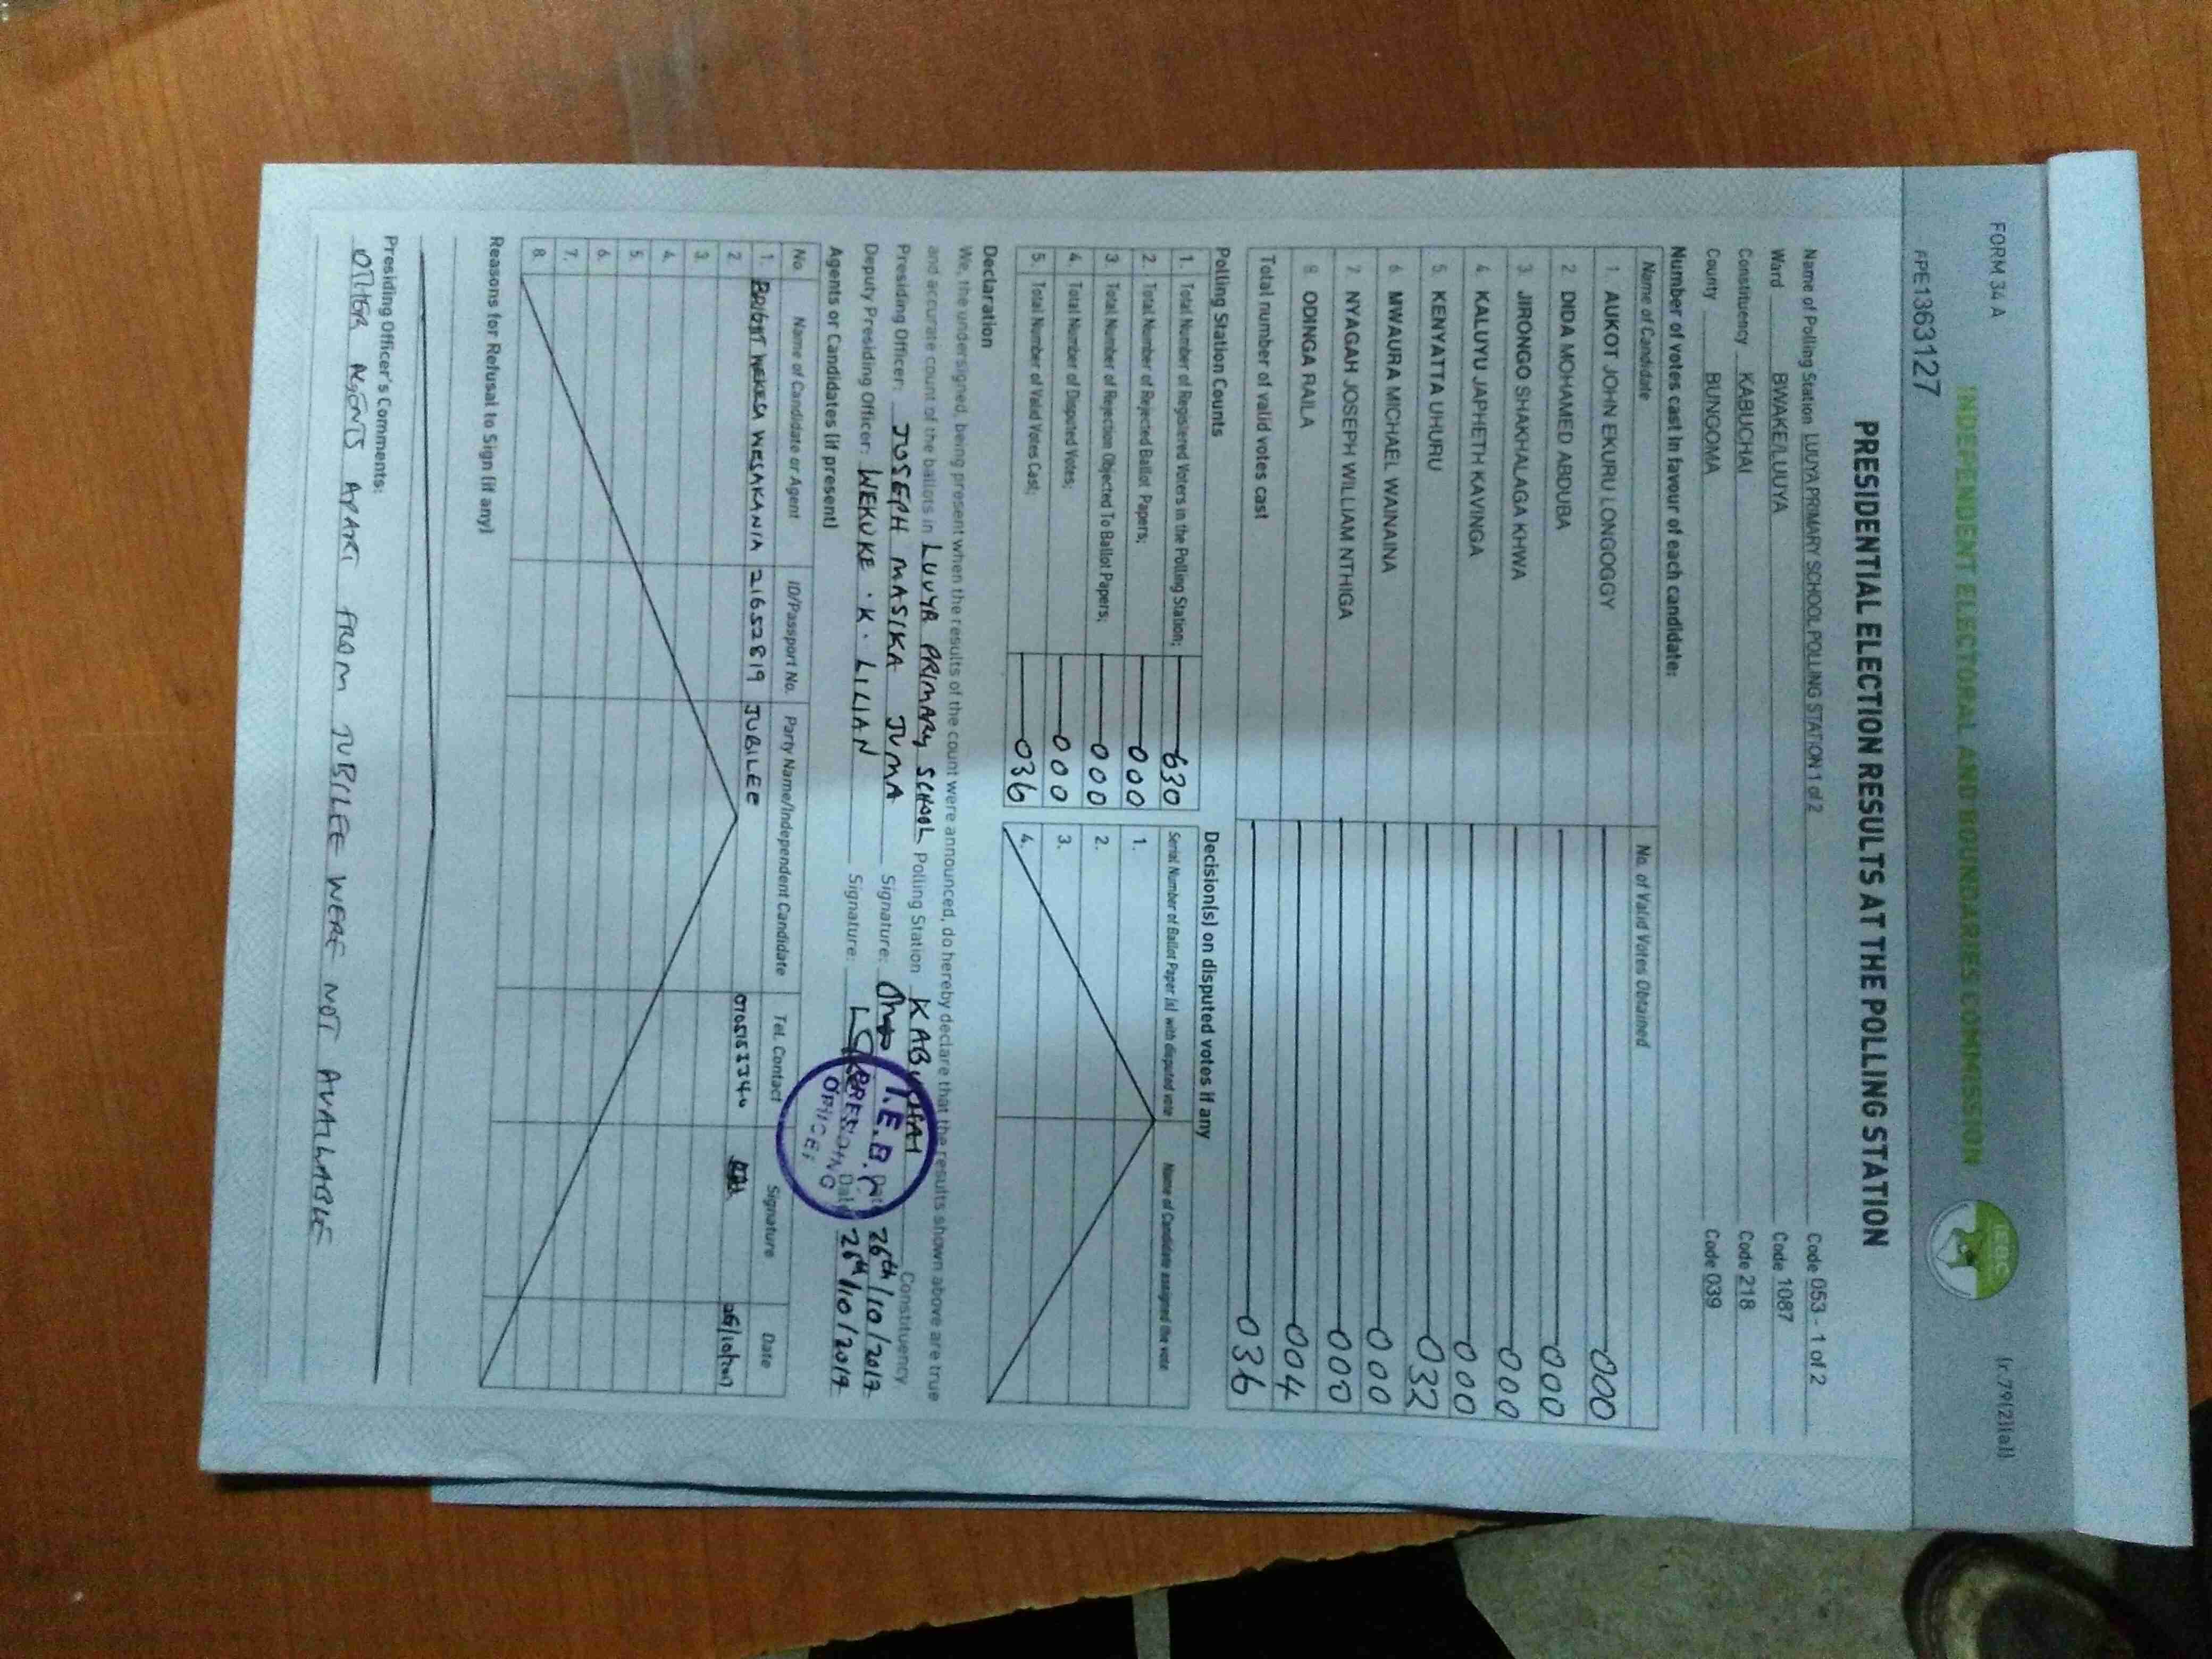 FORM 34 A
(r.79(2)(a))
INDEPENDENT ELECTORAL AND BOUNDARIES COMMISSION
IEBC
PPE1363127
PRESIDENTIAL ELECTION RESULTS AT THE POLLING STATION
Name of Polling Station LUUYA PRIMARY SCHOOL POLLING STATION 1 of 2 Code 053 - 1 of 2
Ward BWAKE/LUUYA Code 1087
Constituency KABUCHAI Code 218
County BUNGOMA Code 039
Number of votes cast in favour of each candidate:
Name of Candidate No. of Valid Votes Obtained
1. AUKOT JOHN EKURU LONGOGGY 000
2 DIDA MOHAMED ABDUBA 000
3. JIRONGO SHAKHALAGA KHWA 000
4. KALUYU JAPHETH KAVINGA 000
5. KENYATTA UHURU 032
6 MWAURA MICHAEL WAINAINA 000
7. NYAGAH JOSEPH WILLIAM NTHIGA 000
8 ODINGA RAILA 004
Total number of valid votes cast 036
Polling Station Counts
1. Total Number of Registered Voters in the Polling Station; 630
2. Total Number of Rejected Ballot Papers; 000
3. Total Number of Rejection Objected To Ballot Papers; 000
4. Total Number of Disputed Votes; 000
5. Total Number of Valid Votes Cast; 036
Decision(s) on disputed votes if any
Serial Number of Ballot Paper (s) with disputed vote Name of Candidate assigned the vote
1.
2.
3.
4.
Declaration
We, the undersigned, being present when the results of the count were announced, do hereby declare that the results shown above are true
and accurate count of the ballots in LUUYA PRIMARY SCHOOL Polling Station KABUCHAI Constituency.
Presiding Officer: JOSEPH MASIKA JUMA Signature: Date 26th/10/2017
Deputy Presiding Officer: WEKUKE . K . LILIAN Signature: Date 26th/10/2017
I.E.B.C
PRESIDING
OFFICER
Agents or Candidates (if present)
No. Name of Candidate or Agent ID/Passport No. Party Name/Independent Candidate Tel. Contact Signature Date
1. WEKESA WESAKANIA 21652819 JUBILEE 26/10/2017
2.
3.
4.
5.
6.
7.
8.
Reasons for Refusal to Sign (if any)
Presiding Officer's Comments:
OTHER AGENTS APART FROM JUBILEE WERE NOT AVAILABLE